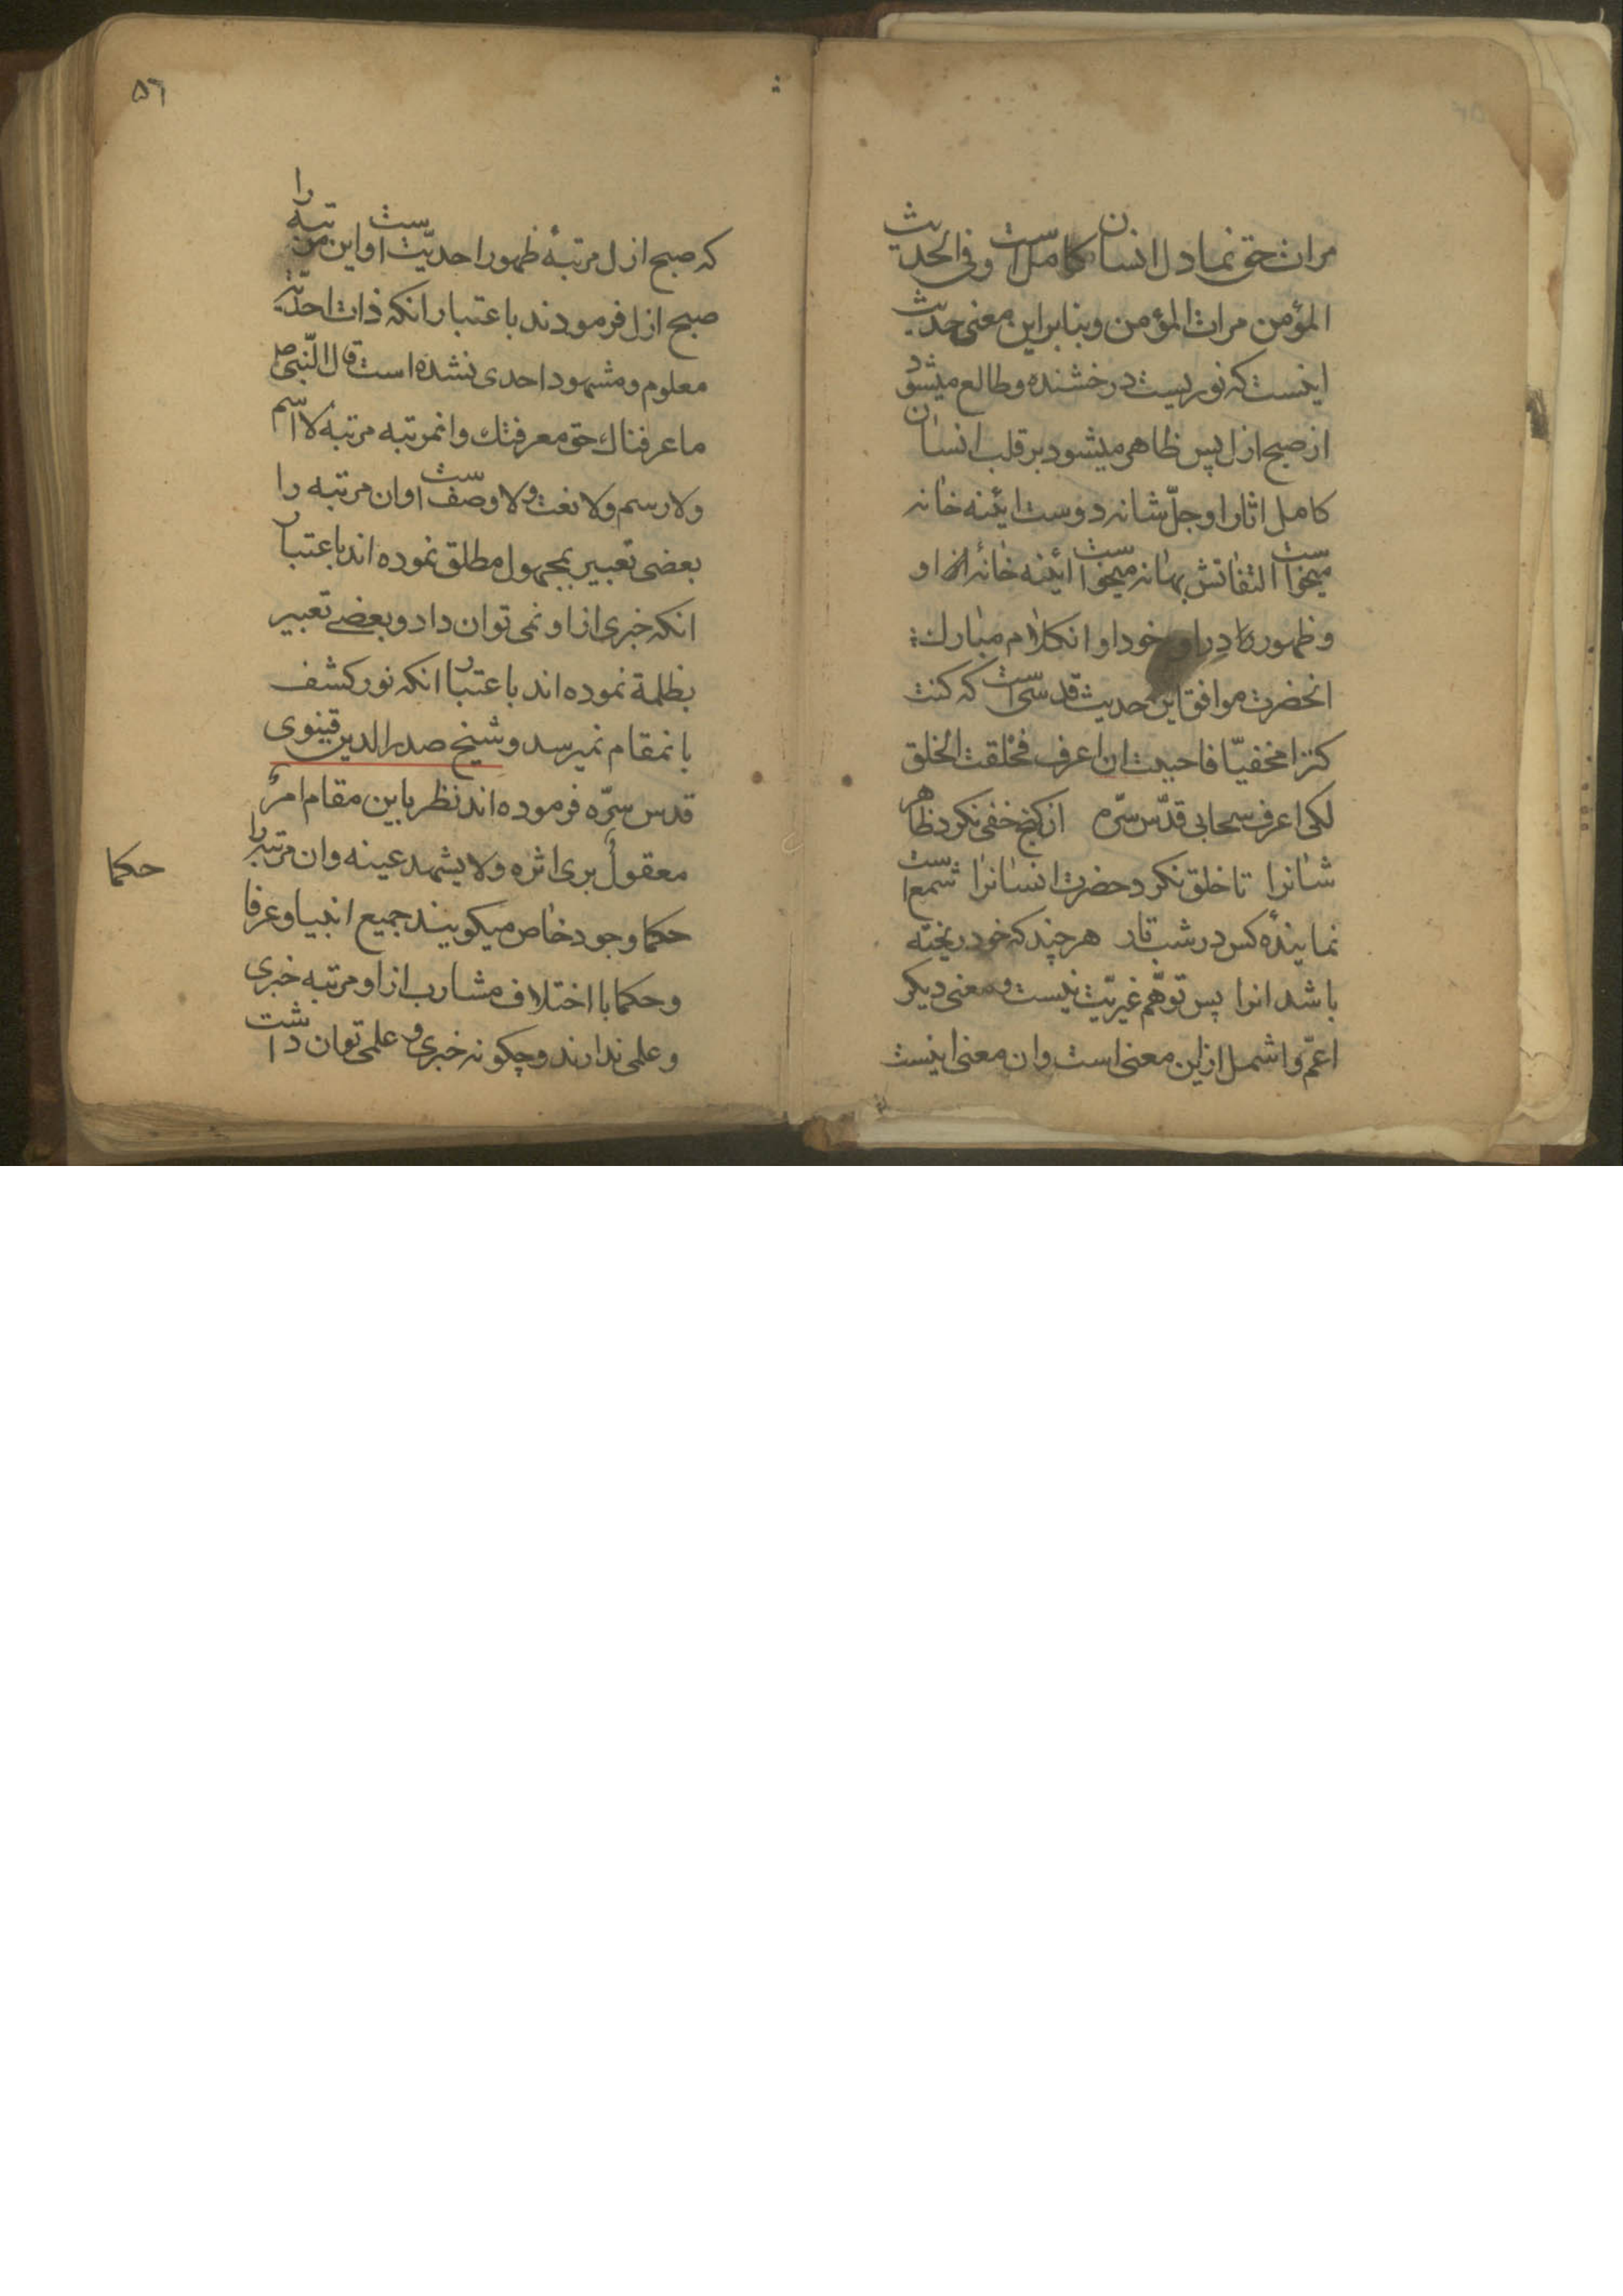 مرات حق نما دل انسان کامل است و فی الحدیث
المؤمن مرات المؤمن و بنا براین معنی حدیث
اینست که نوریست درخشنده و طالع میشود
از صبح ازل پس ظاهر میشود بر قلب انسان
کامل اثار او جلّ شانه دوست ائینه خانه
میخواست التفاتش بهانه میخواست ائینه خانهٔ او
و ظهور در او خود او انکلام مبارک
انحضرت موافق این حدیث قدسی است که کنت
کنزا مخفیّا فاحببت ان اعرف فخلقت الخلق
لکی اعرف سحابی قدّس سّره از کنج خفی نکرد ظاهر
شانرا تا خلق نکرد حضرت انسانرا شمع است
نمایندهٔ کس در شب تار هر چند که خود ریخته
باشد انرا پس توهّم غیریّت نیست و معنی دیکر
اعمّ و اشمل ازاین معنی است وان معنی اینست
٥٦
که صبح ازل مرتبهٔ ظهور احدیّت است و این مرتبه را
صبح ازل فرمودند باعتبار انکه ذات احدّیت
معلوم و مشهود احدی نشده است قال النّبی ص
ما عرفناک حق معرفتک و انمرتبه مرتبهٔ لا اسم
ولا رسم ولا نعت ولا وصف است و ان مرتبه را
بعضی تعبیر بمجهول مطلق نموده اند باعتبار
انکه خبری از او نمی توان داد و بعضی تعبیر
بظلمة نموده اند باعتبار انکه نور کشف
بانمقام نمیرسد و شیخ صدرالدین قینوی
قدس سرّه فرموده اند نظر باین مقام امرٌ
معقولٌ یری اثره ولا یشهد عینه وان مرتبه را
حکما وجود خاص میکویند جمیع انبیا و عرفا
و حکما با اختلاف مشارب از او مرتبه خبری
و علمی ندارند و چکونه خبری و علمی توان داشت
حکما